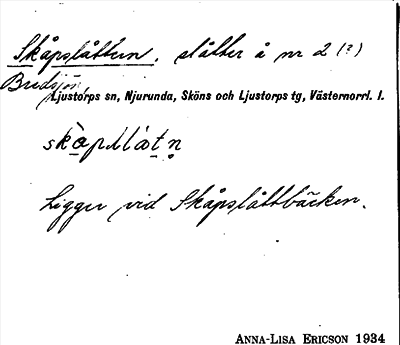 Skåpslåttern, slåtter å nr 2 (?)
Bredsjön,
Ljustorps sn, Njurunda, Sköns och Ljustorps tg, Västernorrl. l.
Ligger vid Skåpslåttbäcken.
ANNA-LISA ERICSON 1934